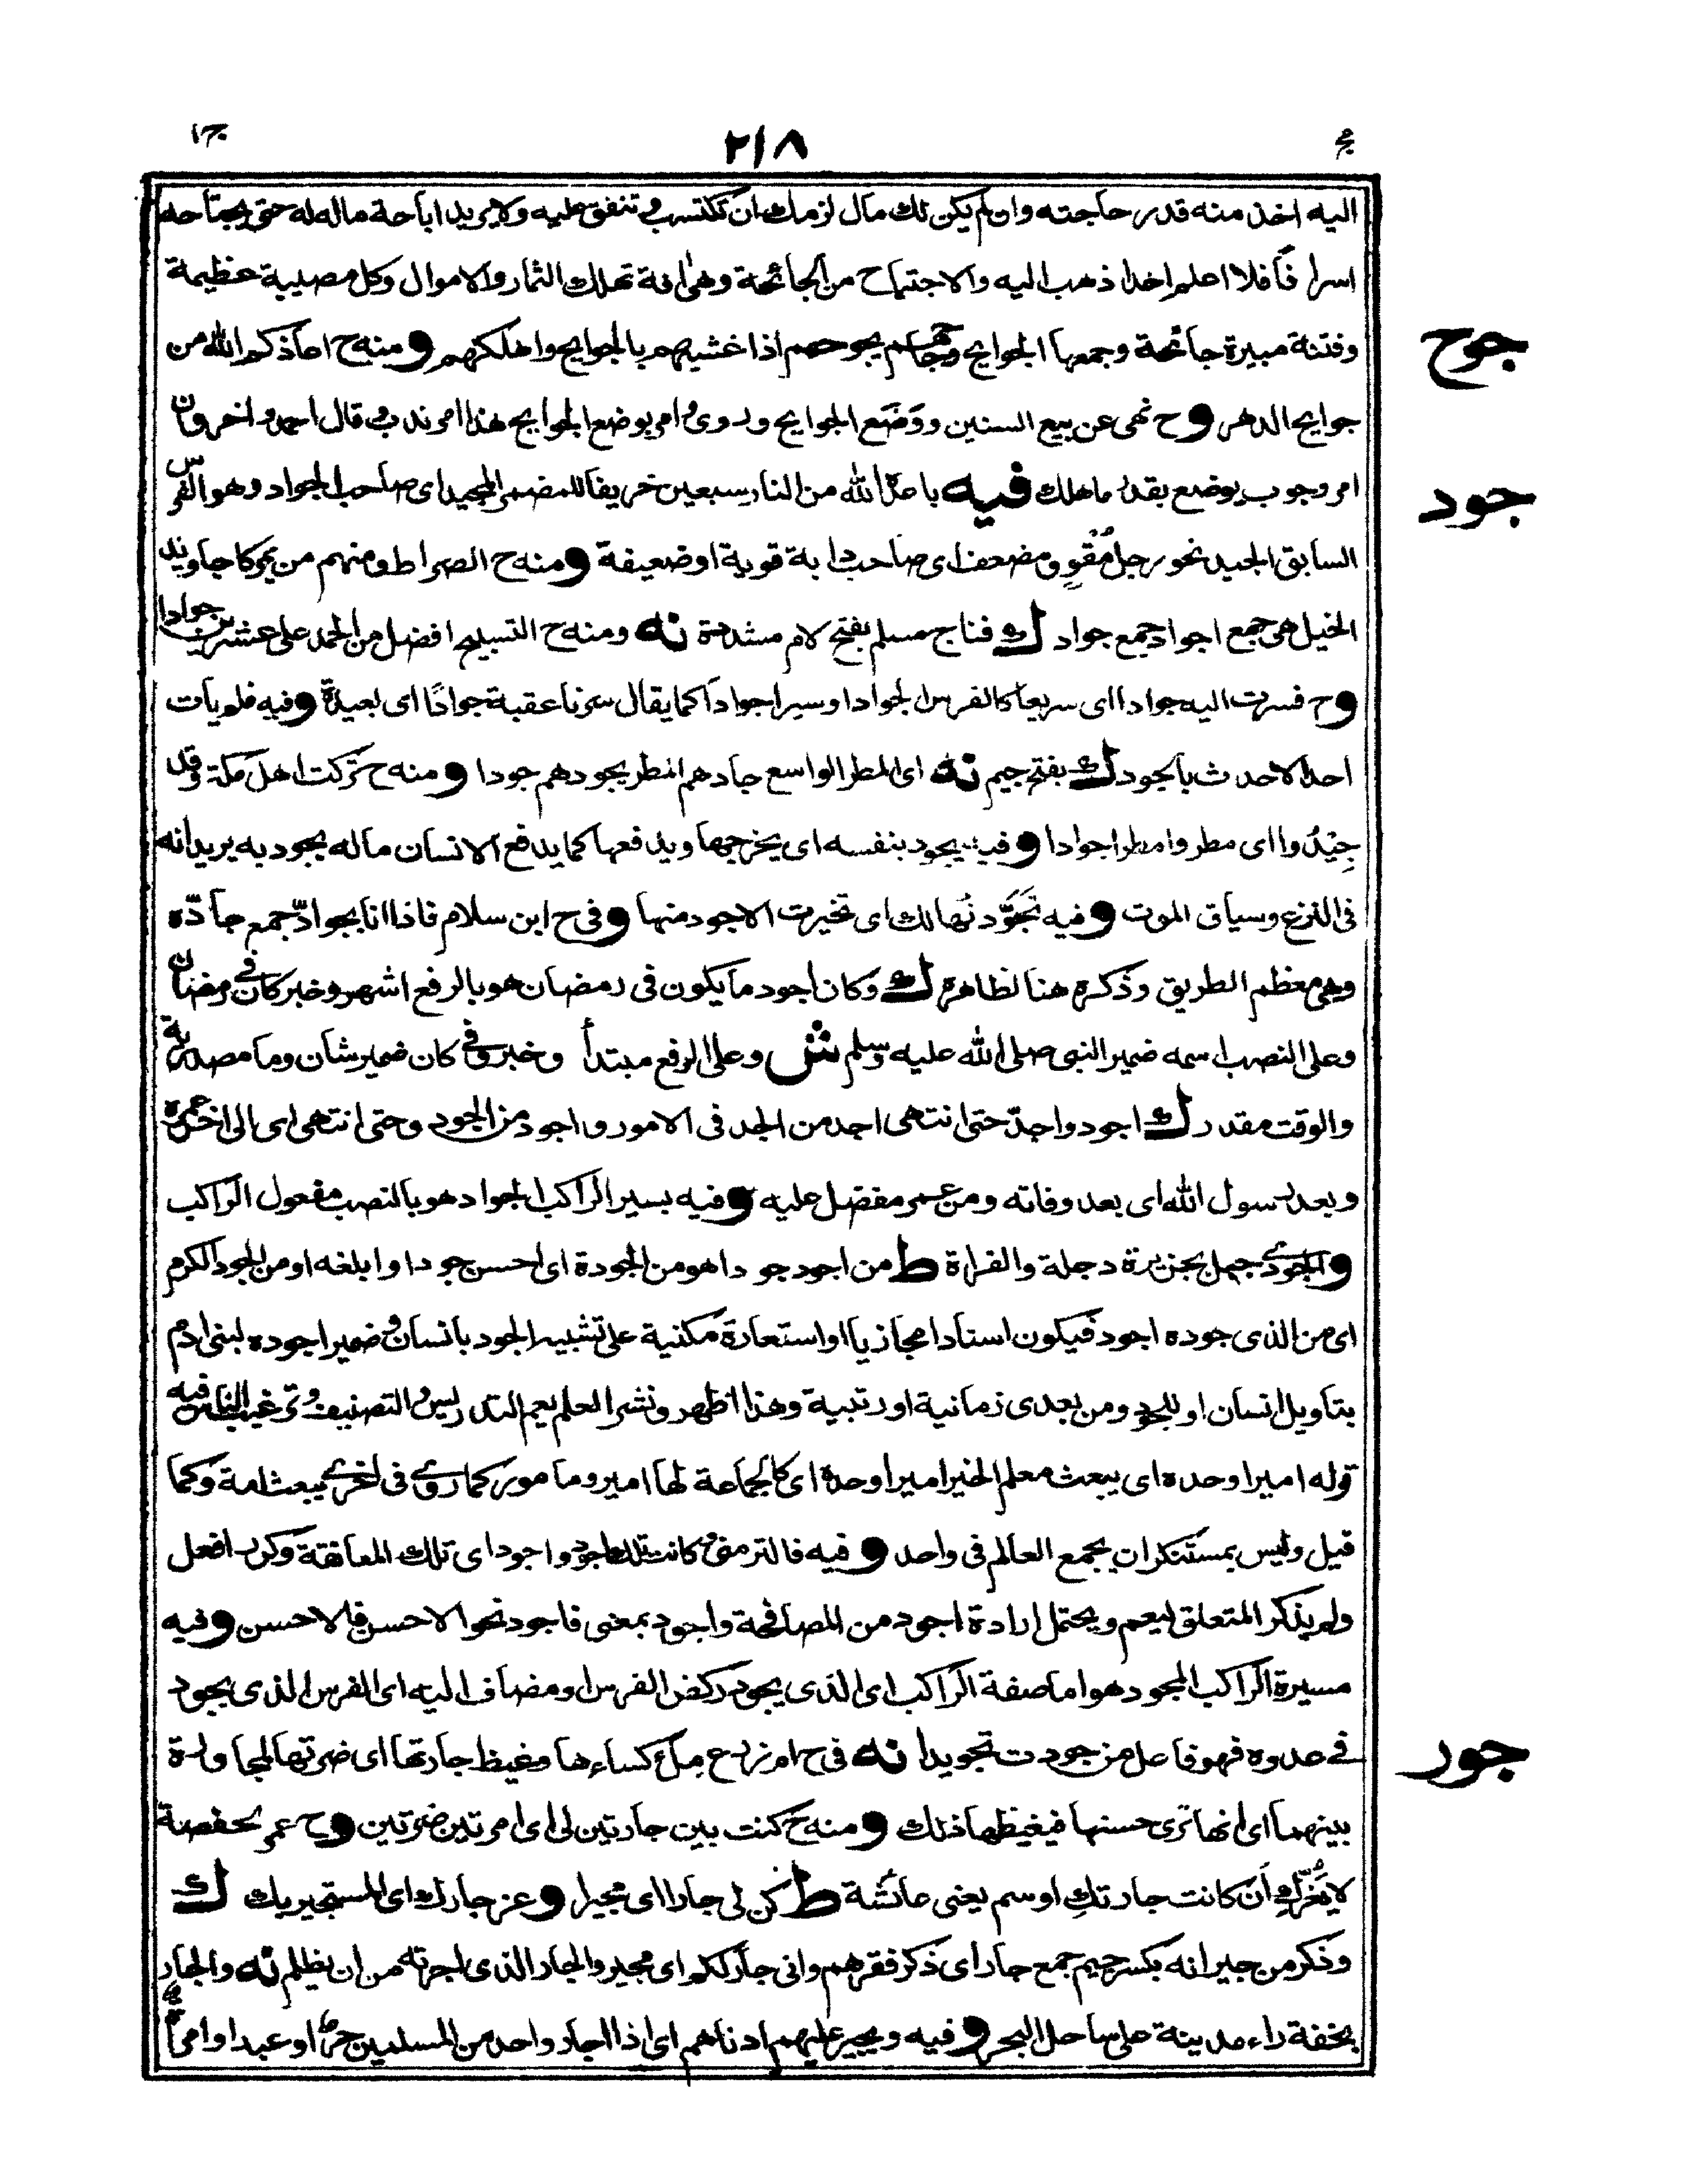 ج
٢١٨
ج١
اليه اخذ منه قدر حاجته وان لم يكن لك مال لزمك ان تكتسب وتنفق عليه ولا يريد اباحة ماله له حتى يجتاحه
اسرافا فلا اعلم احدا ذهب اليه والاجتياح من الجائحة وهى افة تهلك الثمار والاموال وكل مصيبة عظيمة
جوح
وفتنة مبيرة جائحة وجمعها الجوايح وجاحهم يجوحهم اذا غشيهم بالجوايح واهلكهم ومنه ح اعاذكم الله من
جوايح الدهر وح نهى عن بيع السنين ووضع الجوايح وروى وامر بوضع الجوايح هذا امر ندب وقال احمد واخرون
جود
امر وجوب يوضع بقدر ما هلك فيه باعده الله من النار سبعين خريفا للمضمر المجيد اى صاحب الجواد وهو الفرس
السابق الجيد نحو رجل مُقوٍ ومضعف اى صاحب دابة قوية او ضعيفة ومنه ح الصراط ومنهم من يمر كاجاويد
الخيل هى جمع اجواد جمع جواد ك فناج مسلم بفتح لام مشددة نه ومنه ح التسبيح افضل من الحمد على عشرين جوادا
وح فسرت اليه جوادا اى سريعا كالفرس الجواد او سيرا جوادا كما يقال سرنا عقبة جوادًا اى بعيدة وفيه فلم يات
احد الا حدث بالجود ك بفتح جيم نه اى المطر الواسع جادهم المطر يجودهم جودا ومنه ح تركت اهل مكة وقد
جِيْدُوا اى مطروا مطرا جوادا وفيه يجود بنفسه اى يخرجها ويدفعها كما يدفع الانسان ماله يجود به يريد انه
فى النزع وسياق الموت وفيه تَجَوَّدتُها لك اى تخيرت الاجود منها وفى ح ابن سلام فاذا انا بجوادّ جمع جادّه
وهى معظم الطريق وذكره هنا لظاهره ك وكان اجود ما يكون فى رمضان هو بالرفع اشهر وخبر كان فى رمضان
وعلى النصب اسمه ضمير النبى صلى الله عليه وسلم ش وعلى الرفع مبتدأ وخبر وفى كان ضمير شان وما مصدرية
والوقت مقدر ك اجود واجدّ حتى انتهى اجد من الجد فى الامور واجود من الجود وحتى انتهى اى الى اخر عمره
وبعد رسول الله اى بعد وفاته ومن عمر مفضل عليه وفيه بسير الراكب الجواد هو بالنصب مفعول الراكب
والجودى جبل بجزيرة دجلة والفراة ط من اجود جودا هو من الجودة اى احسن جودا وابلغه او من الجود الكرم
اى من الذى جوده اجود فيكون اسنادا مجازيا او استعارة مكنية على تشبيه الجود بانسان وضمير اجوده لبنى ادم
بتاويل انسان او للجود ومن بعدى زمانية او رتبية وهذا اظهر ونشر العلم يعم التدريس والتصنيف وترغيب الناس فيه
قوله اميرا وحده اى يبعث معلم الخير اميرا وحده اى كالجماعة لها امير ومامور كما روى فى اخرى يبعث امة وكما
قيل وليس بمستنكر ان يجمع العالم فى واحد وفيه فالتزمنى كانت تلك اجود واجود اى تلك المعانقة وكرر افعل
ولم يذكر المتعلق ليعم ويحتمل ارادة اجود من المصافحة واجود بمعنى فاجود نحو الاحسن فالاحسن وفيه
مسيرة الراكب المجود هو اما صفة الراكب اى الذى يجود ركض الفرس او مضاف اليه اى الفرس الذى يجود
جور
فى عدوه فهو فاعل من جودت تجويدا نه فى ح ام زرع مِلْء كساءها وغيظ جارتها اى ضرتها لمجاورة
بينهما اى انها ترى حسنها فيغيظها ذلك ومنه ح كنت بين جارتين لى اى امرتين ضرتين وح عمر لحفصة
لا يَغُرَّكِ أن كانت جارتكِ اوسم يعنى عائشة ط كن لى جارا اى مجيرا وعز جارك اى المستجير بك ك
وذكر من جيرانه بكسر جيم جمع جار أى ذكر فقرهم وانى جار لكم اى مجير والجار الذى اجرته من ان يظلم نه والجار
بخفة راء مدينة على ساحل البحر وفيه ويجير عليهم ادناهم اى اذا اجار واحد من المسلمين حر او عبد او امرأة